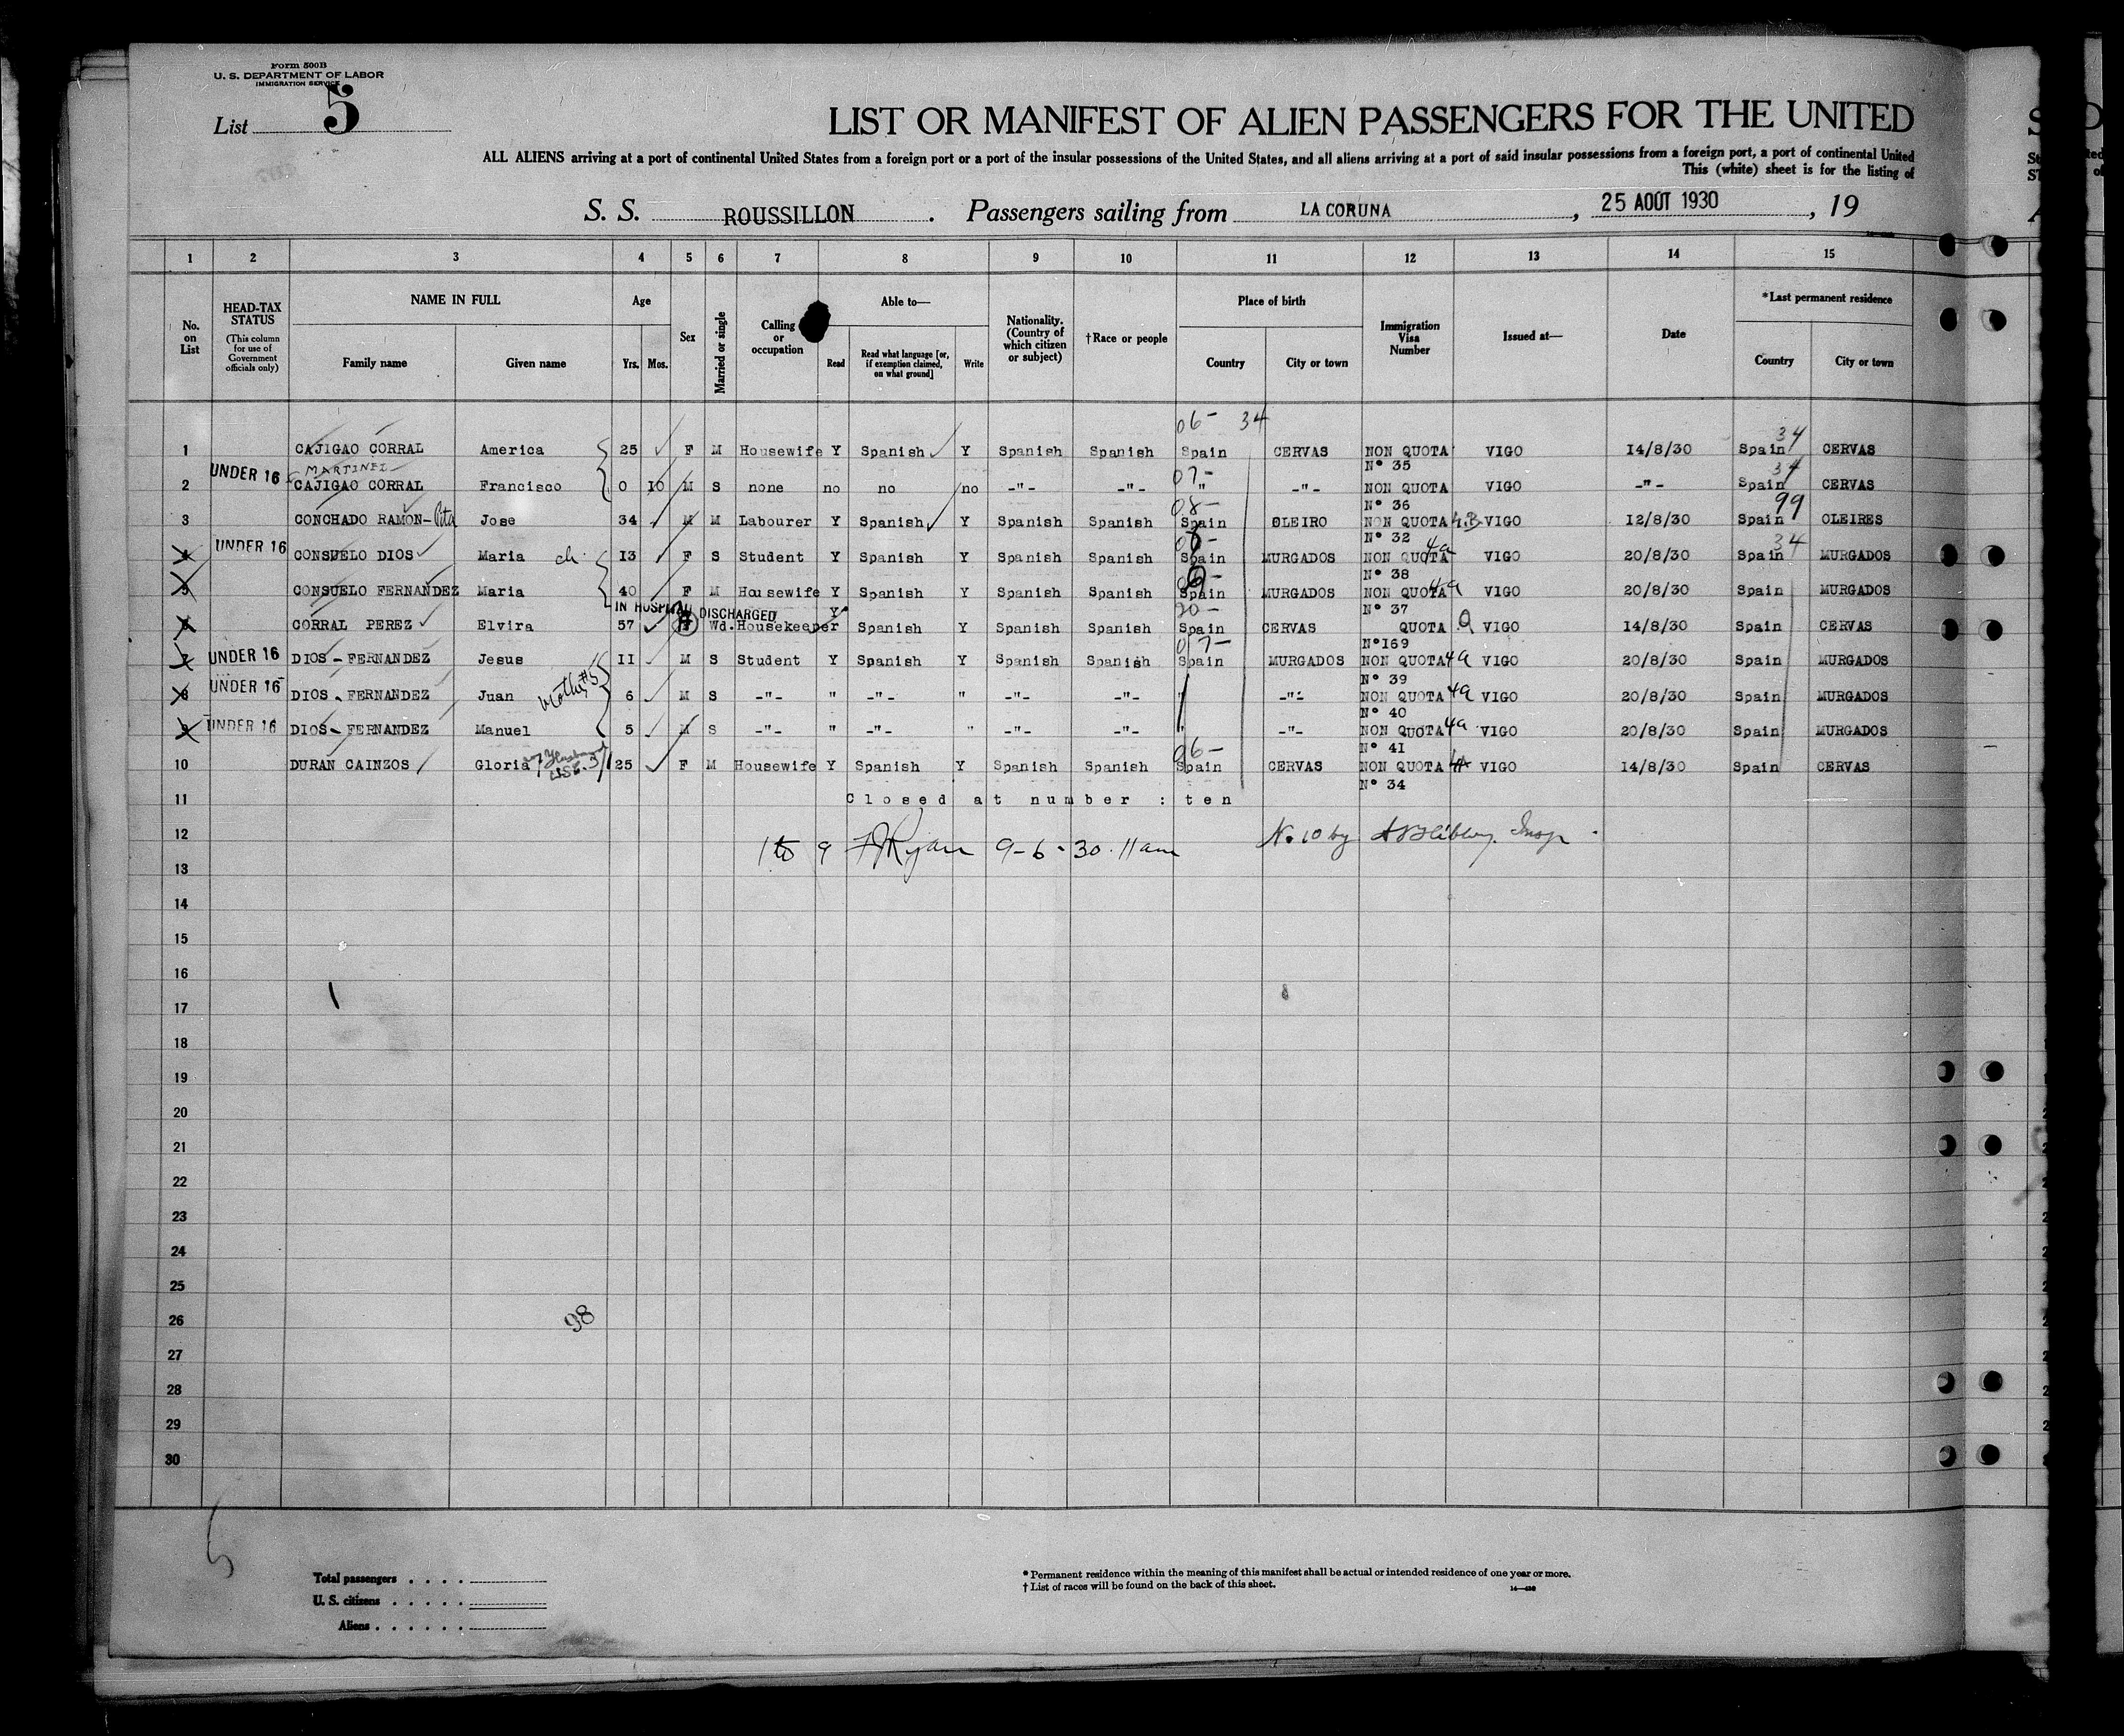 Form 500B
U. S. DEPARTMENT OF LABOR
IMMIGRATION SERVICE
List 5
LIST OR MANIFEST OF ALIEN PASSENGERS FOR THE UNITED
ALL ALIENS arriving at a port of continental United States from a foreign port or a port of the insular possessions of the United States, and all aliens arriving at a port of said insular possessions from a foreign port, a port of continental United
This (white) sheet is for the listing of
S. S. ROUSSILLON . Passengers sailing from LA CORUNA , 25 AOÛT 1930 , 19
1 2 3 4 5 6 7 8 9 10 11 12 13 14 15
No. on List
HEAD-TAX STATUS
(This column for use of Government officials only)
NAME IN FULL
Family name Given name
Age
Yrs. Mos.
Sex
Married or single
Calling or occupation
Able to—
Read
Read what language [or, if exemption claimed, on what ground]
Write
Nationality. (Country of which citizen or subject)
†Race or people
Place of birth
Country City or town
Immigration Visa Number
Issued at—
Date
*Last permanent residence
Country City or town
06- 34
1 CAJIGAO CORRAL America 25 F M Housewife Y Spanish Y Spanish Spanish Spain CERVAS NON QUOTA VIGO 14/8/30 Spain 34 CERVAS
MARTINEZ N° 35
2 UNDER 16 CAJIGAO CORRAL Francisco 0 10 M S none no no no -"- -"- 07- " -"- NON QUOTA VIGO -"- Spain 34 CERVAS
N° 36
3 CONCHADO RAMON- Pita Jose 34 M M Labourer Y Spanish Y Spanish Spanish 08- Spain OLEIRO NON QUOTA VIGO 12/8/30 Spain 99 OLEIRES
N° 32
4 UNDER 16 CONSUELO DIOS Maria ch. 13 F S Student Y Spanish Y Spanish Spanish Spain MURGADOS NON QUOTA 4a VIGO 20/8/30 Spain 34 MURGADOS
N° 38
5 CONSUELO FERNANDEZ Maria 40 F M Housewife Y Spanish Y Spanish Spanish Spain MURGADOS NON QUOTA 4a VIGO 20/8/30 Spain MURGADOS
IN HOSPITAL DISCHARGED N° 37
6 CORRAL PEREZ Elvira 57 F Wd. Housekeeper Y Spanish Y Spanish Spanish Spain CERVAS QUOTA VIGO 14/8/30 Spain CERVAS
N°169
7 UNDER 16 DIOS - FERNANDEZ Jesus 11 M S Student Y Spanish Y Spanish Spanish 07- Spain MURGADOS NON QUOTA 4a VIGO 20/8/30 Spain MURGADOS
Mother #5 N° 39
8 UNDER 16 DIOS - FERNANDEZ Juan 6 M S -"- " -"- " -"- -"- " -"- NON QUOTA 4a VIGO 20/8/30 Spain MURGADOS
N° 40
9 UNDER 16 DIOS - FERNANDEZ Manuel 5 M S -"- " -"- " -"- -"- " -"- NON QUOTA 4a VIGO 20/8/30 Spain MURGADOS
N° 41
10 DURAN CAINZOS Gloria 25 F M Housewife Y Spanish Y Spanish Spanish 06- Spain CERVAS NON QUOTA VIGO 14/8/30 Spain CERVAS
N° 34
11 Closed at number : ten
12 1 to 9 Ryan 9-6-30. 11 am No 10 by Insp.
13
14
15
16
17
18
19
20
21
22
23
24
25
98
26
27
28
29
30
5
Total passengers
U. S. citizens
Aliens
* Permanent residence within the meaning of this manifest shall be actual or intended residence of one year or more.
† List of races will be found on the back of this sheet.